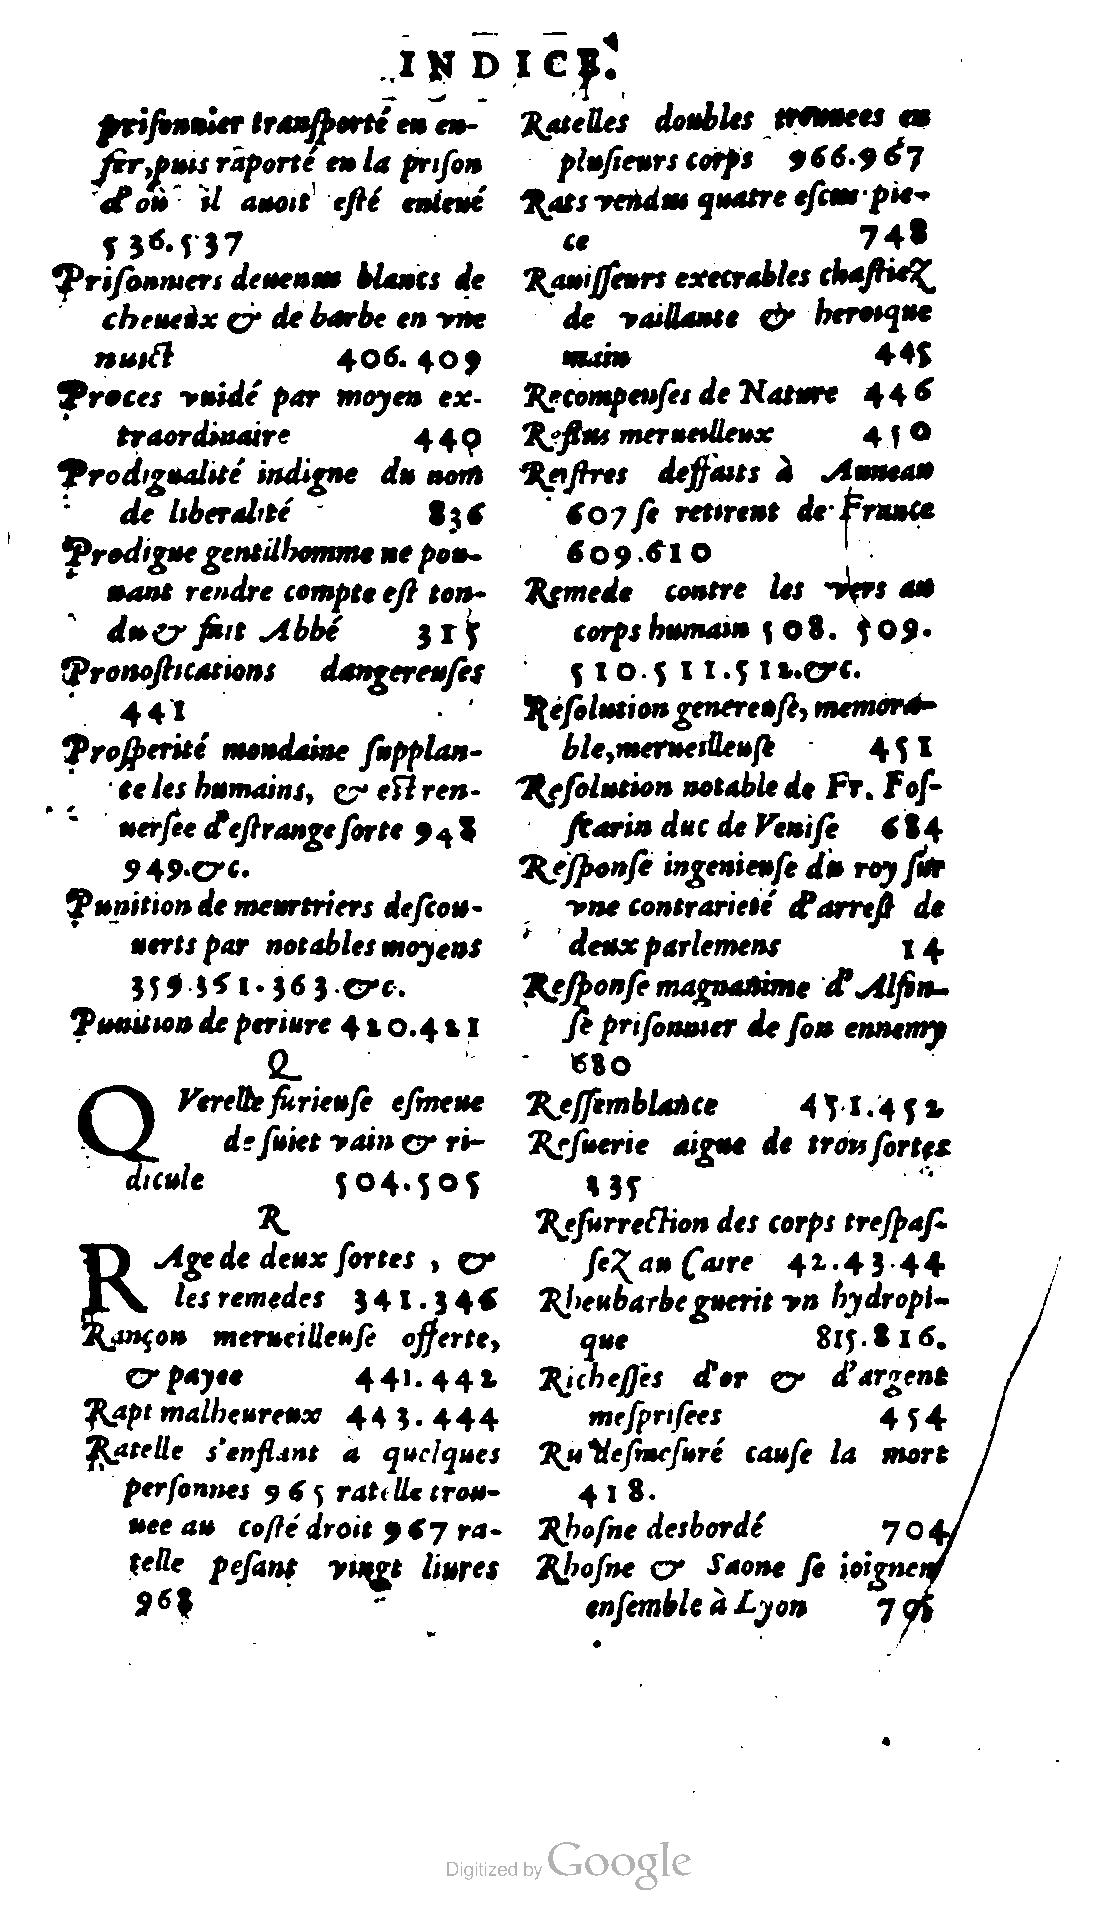 INDICE.
prisonnier transporté en en-
fer, puis rāporté en la prison
d'où il auoit esté enleué
536.537
Prisonniers deuenus blancs de
cheueux & de barbe en vne
nuict 406.409
Proces vuidé par moyen ex-
traordinaire 440
Prodigualité indigne du nom
de liberalité 836
Prodigue gentilhomme ne pou-
uant rendre compte est ton-
du & fait Abbé 315
Pronostications dangereuses
441
Prosperité mondaine supplan-
te les humains, & est ren-
uersee d'estrange sorte 948
949.&c.
Punition de meurtriers descou-
uerts par notables moyens
359.361.363.&c.
Punition de periure 420.421
Q
QVerelle furieuse esmeue
de suiet vain & ri-
dicule 504.505
R
RAge de deux sortes, &
les remedes 341.346
Rançon merueilleuse offerte,
& payee 441.442
Rapt malheureux 443.444
Ratelle s'enflant à quelques
personnes 965 ratelle trou-
uee au costé droit 967 ra-
telle pesant vingt liures
968
Ratelles doubles trouuees en
plusieurs corps 966.967
Rats vendus quatre escus pie-
ce 748
Rauisseurs execrables chastiez
de vaillante & heroique
main 445
Recompenses de Nature 446
Reflus merueilleux 450
Reistres deffaits à Auneau
607 se retirent de France
609.610
Remede contre les vers au
corps humain 508. 509.
510.511.512.&c.
Resolution genereuse, memora-
ble, merueilleuse 451
Resolution notable de Fr. Fos-
carin duc de Venise 684
Response ingenieuse du roy sur
vne contrarieté d'arrest de
deux parlemens 14
Response magnanime d'Alfon-
se prisonnier de son ennemy
680
Ressemblance 451.452
Resuerie aigue de trois sortes
335
Resurrection des corps trespas-
sez au Caire 42.43.44
Rheubarbe guerit vn hydropi-
que 815.816.
Richesses d'or & d'argent
mesprisees 454
Ru desmesuré cause la mort
418.
Rhosne desbordé 704
Rhosne & Saone se ioignent
ensemble à Lyon 705
Digitized by Google